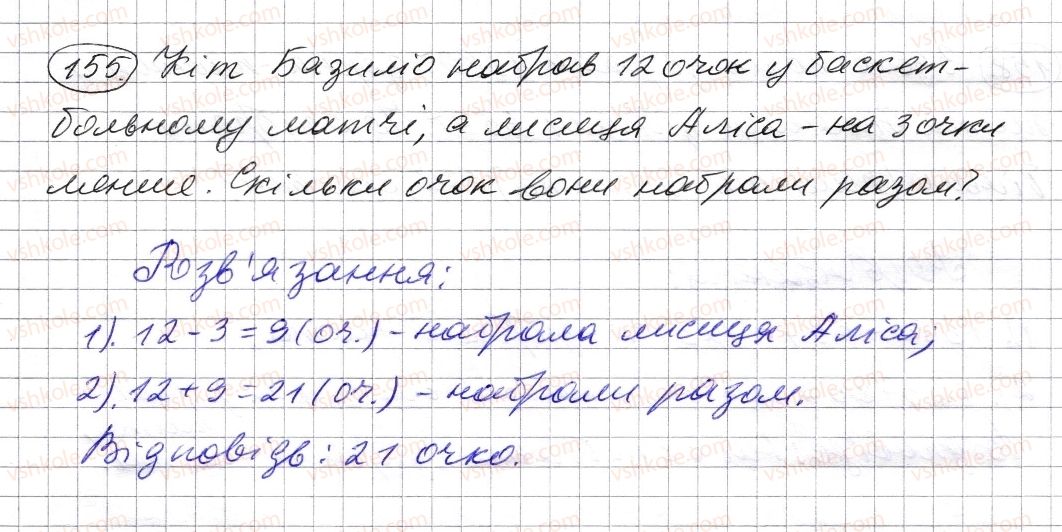 155. Кіт Базиліо набрав 12 очок у баскет-
больному матчі, а лисиця Аліса - на 3 очки
менше. Скільки очок вони набрали разом?
Розв'язання:
1). 12 - 3 = 9 (оч.) - набрала лисиця Аліса;
2). 12 + 9 = 21 (оч.) - набрали разом.
Відповідь: 21 очко.